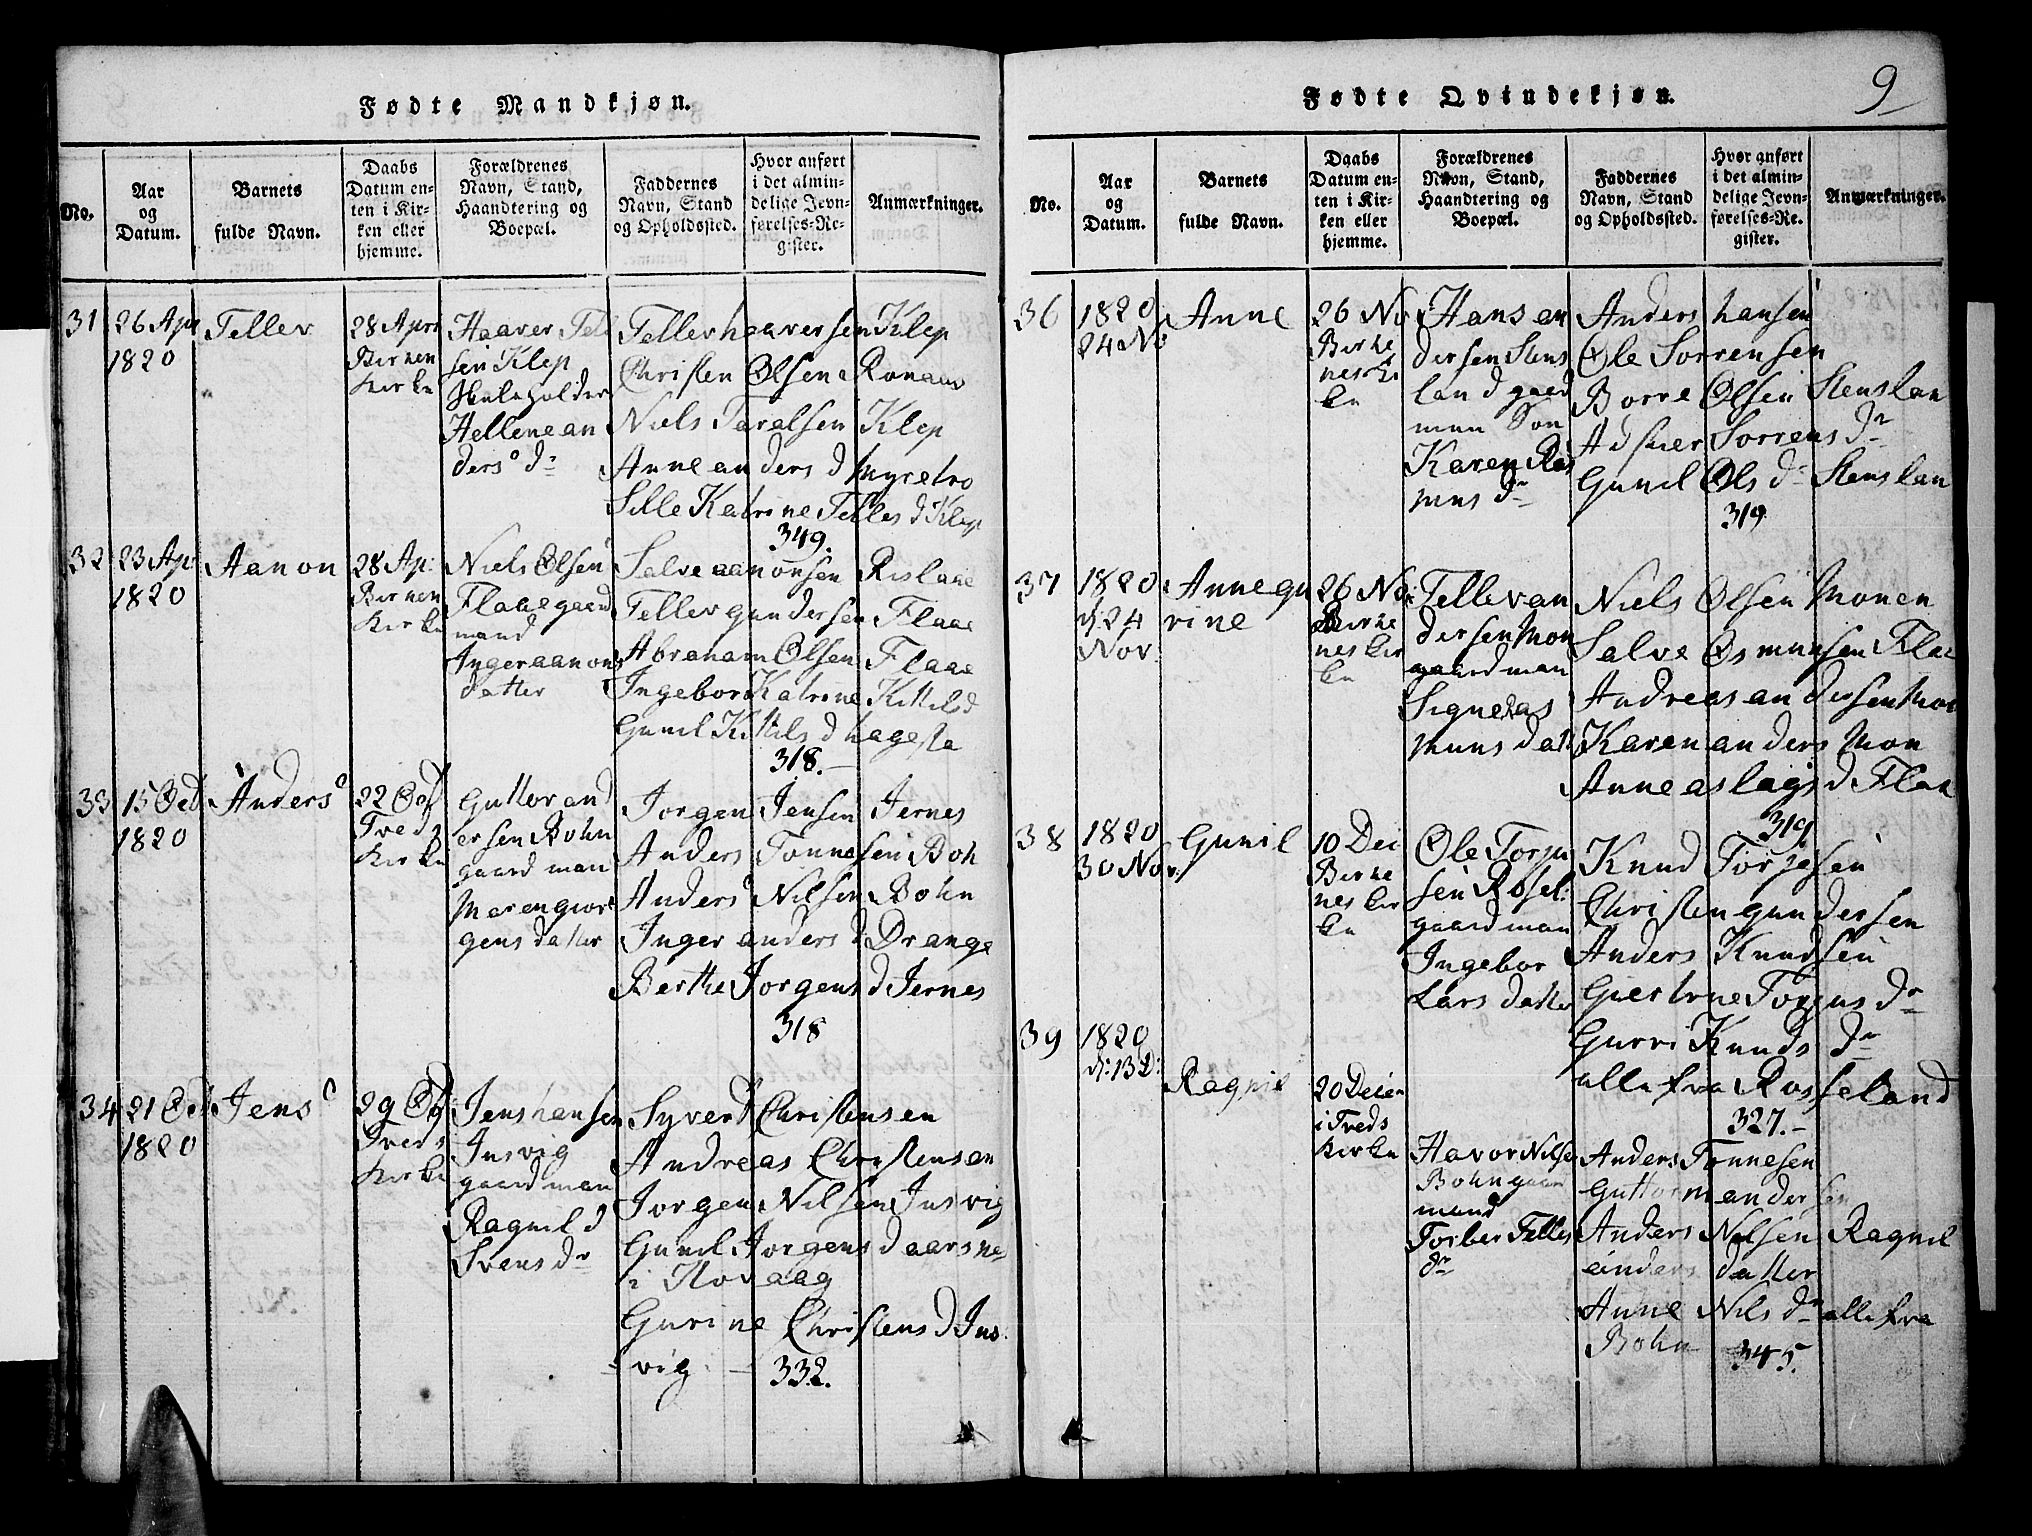 Fødte Mandkjøn.
No.
Aar
og
Datum.
Barnets
fulde Navn.
Daabs
Datum en-
ten i Kir-
ken eller
hjemme.
Forældrenes
Navn, Stand,
Haandtering og
Boepæl.
Faddernes
Navn, Stand
og Opholdssted.
Hvor anført
i det almin-
delige Jevn-
førelses-Re-
gister.
Anmærkninger.
31
26 Apr
1820
Tellev
28 Apri
Birken
kirke
Haaver Tell
sen Klep
skuleholder
Hellene an
ders d
Tellev haaversen Klep
Christen Olsen Ronaas
Niels Taralsen Klep
Anne anders d Myrebro
Sille Katrine Telles d Klep
349.
32
23 Ap:
1820
Aanon
28 Ap:
Birken
kirke
Niels Olsen
Flaae gaard
mand
Inger aanons
datter
Salve aanonsen Rislane
Tellev gundersen Flaae
Abraham Olsen Flaae
Ingebor Katrine Kittilsd
Gunil Kittils d hagesta
318.
33
15 Oct
1820
Anders
22 Oct
Treds
kirke
Guttor and
ersen Bohn
gaard man
Maren giør
gens datter
Jorgen Jensen Jernes
Anders Tonnesen Boh
Anders Nilsen Bohn
Inger anders d Drange
Berthe Jorgens d Jernes
318
34
21 Oct
1820
Jens
29 Oct
Treds
kirke
Jens hansen
Jusvig
gaard man
Ragnild
Svens dr
Syverd Christensen
Andreas Christensen
Jorgen Nilsen Jusvig
Gunil Jorgens d aarsne
i Hovaag
Gurine Christens d Jus
vig
332.
Fødte Qvindekjøn.
9
No.
Aar
og
Datum.
Barnets
fulde Navn.
Daabs
Datum en-
ten i Kir-
ken eller
hjemme.
Forældrenes
Navn, Stand,
Haandtering og
Boepæl.
Faddernes
Navn, Stand
og Opholdssted.
Hvor anført
i det almin-
delige Jevn-
førelses-Re-
gister.
Anmærkninger.
36
1820
24 No
Anne
26 No
Birke
nes ki
ke
Hans an
dersen Stens
land gaard
man Son
Karen Ras
mus dr
Anders hansen
Ole Sorrensen
Borre Olsen Stenslan
Adsker Sorrens dr
Gunil Ols d Stenslan
319
37
1820
d 24
Nov
Anne gu
rine
26 No
Birke
nes kir
ke
Tellev an
dersen Mon
gaard man
Signe Ras
muns datt
Niels Olsen Monen
Salve Osmunsen Flae
Andreas andersen Mon
Karen anders Mon
Anne aslags d Flae
319
38
1820
30 Nov
Gunil
10 Dec
Birke
nes kir
ke
Ole Torju
sen Rosel:
gaard man
Ingebor
Lars datte
Knud Torjesen
Christen gundersen
Anders Knudsen
Giertrue Torjus dr
Gurri Knuds dr
alle fra Rosseland
327.
39
1820
d: 13 D:
Ragnil
20 Decem
i Treds
kirke
Havor Nilse
Bohn gaar
mand
Torber Telles
dr
Anders Tonnesen
Guttorm andersen
Anders Nilsen Ragnil
anders datter
Anne Nils dr alle fra
Bohn
345.